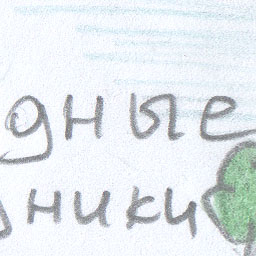 дные
ники